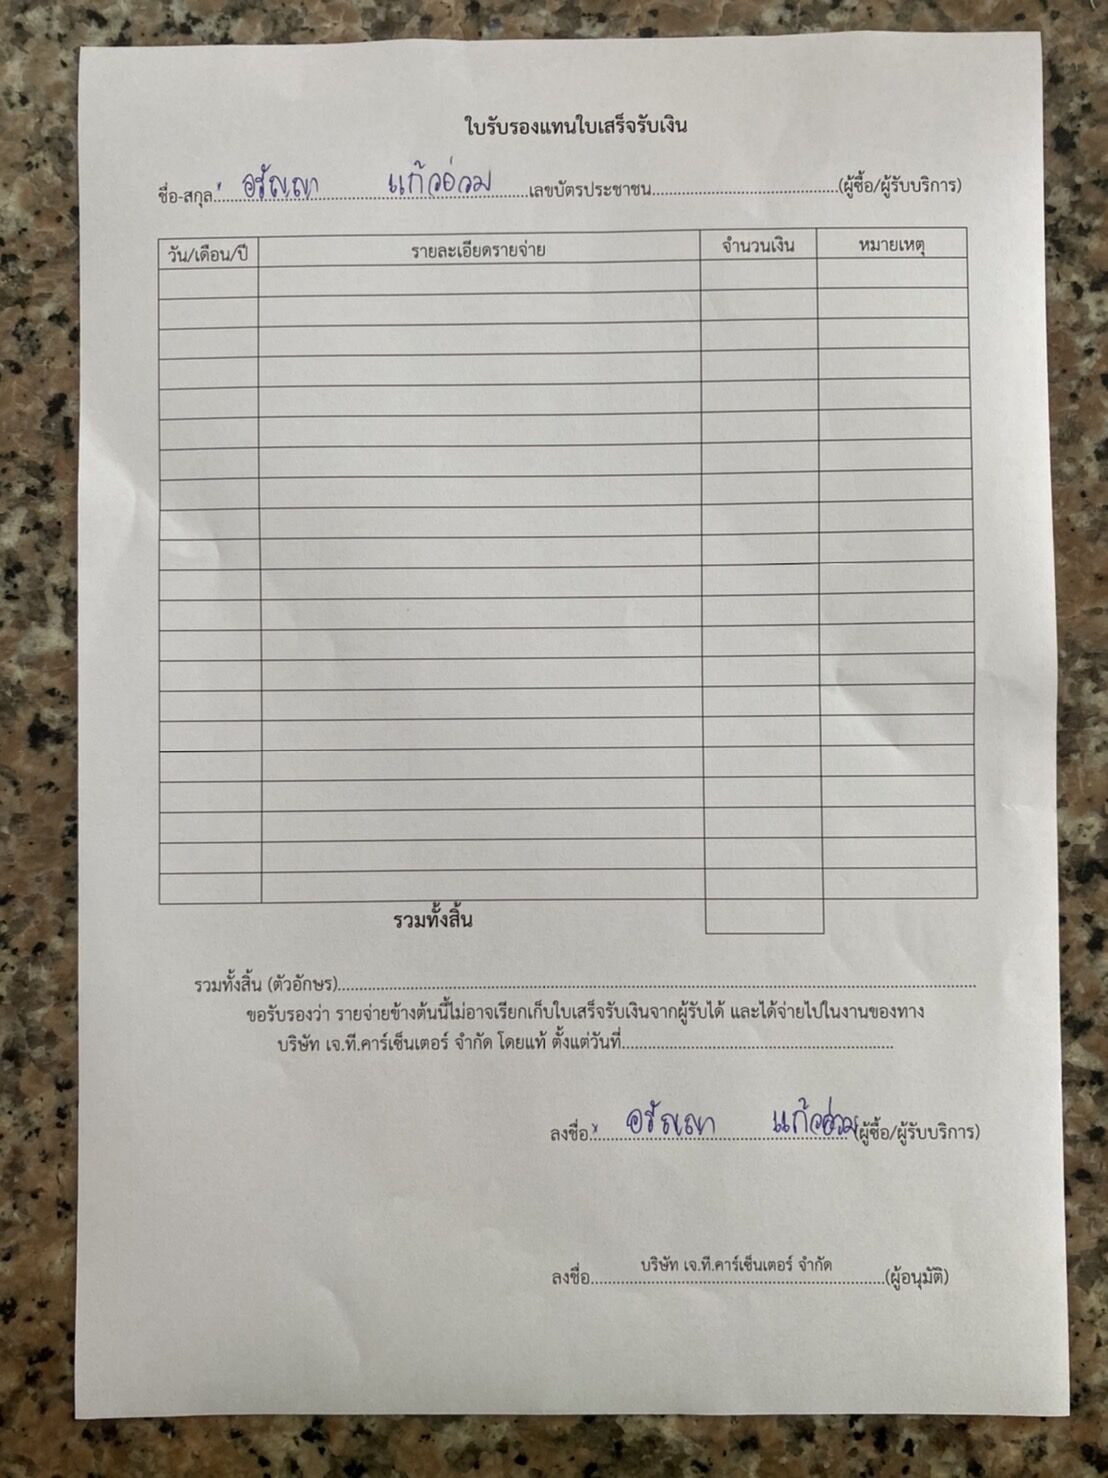 ใบรับรองแทนใบเสร็จรับเงิน
ชื่อ-สกุล อรัญญา แก้วอ่วม เลขบัตรประชาชน (ผู้ซื้อ/ผู้รับบริการ)
วัน/เดือน/ปี รายละเอียดรายจ่าย จำนวนเงิน หมายเหตุ
รวมทั้งสิ้น
รวมทั้งสิ้น (ตัวอักษร)
ขอรับรองว่า รายจ่ายข้างต้นนี้ไม่อาจเรียกเก็บใบเสร็จรับเงินจากผู้รับได้ และได้จ่ายไปในงานของทาง
บริษัท เจ.ที.คาร์เซ็นเตอร์ จำกัด โดยแท้ ตั้งแต่วันที่
ลงชื่อ x อรัญญา แก้วอ่วม (ผู้ซื้อ/ผู้รับบริการ)
ลงชื่อ บริษัท เจ.ที.คาร์เซ็นเตอร์ จำกัด (ผู้อนุมัติ)